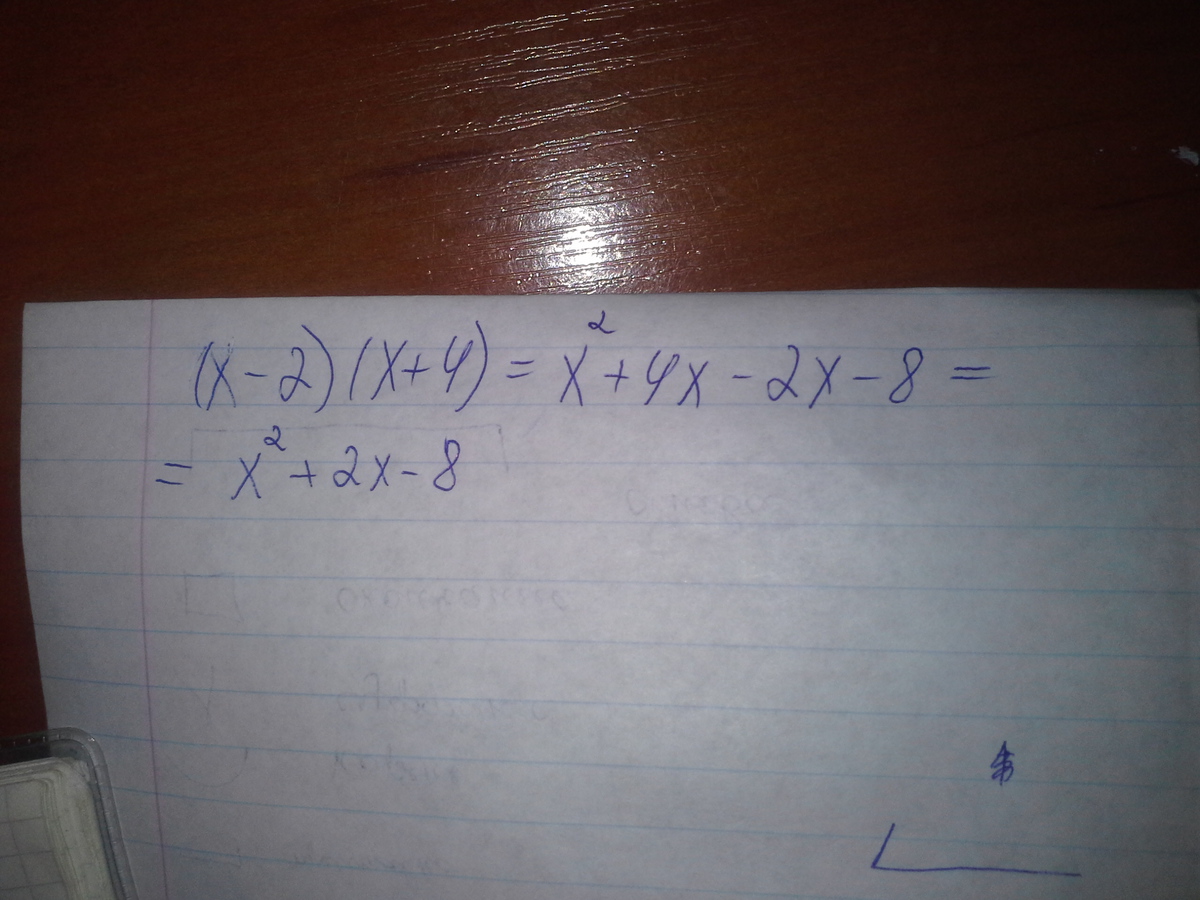 (x-2)(x+4) = x² + 4x - 2x - 8 =
= x² + 2x - 8